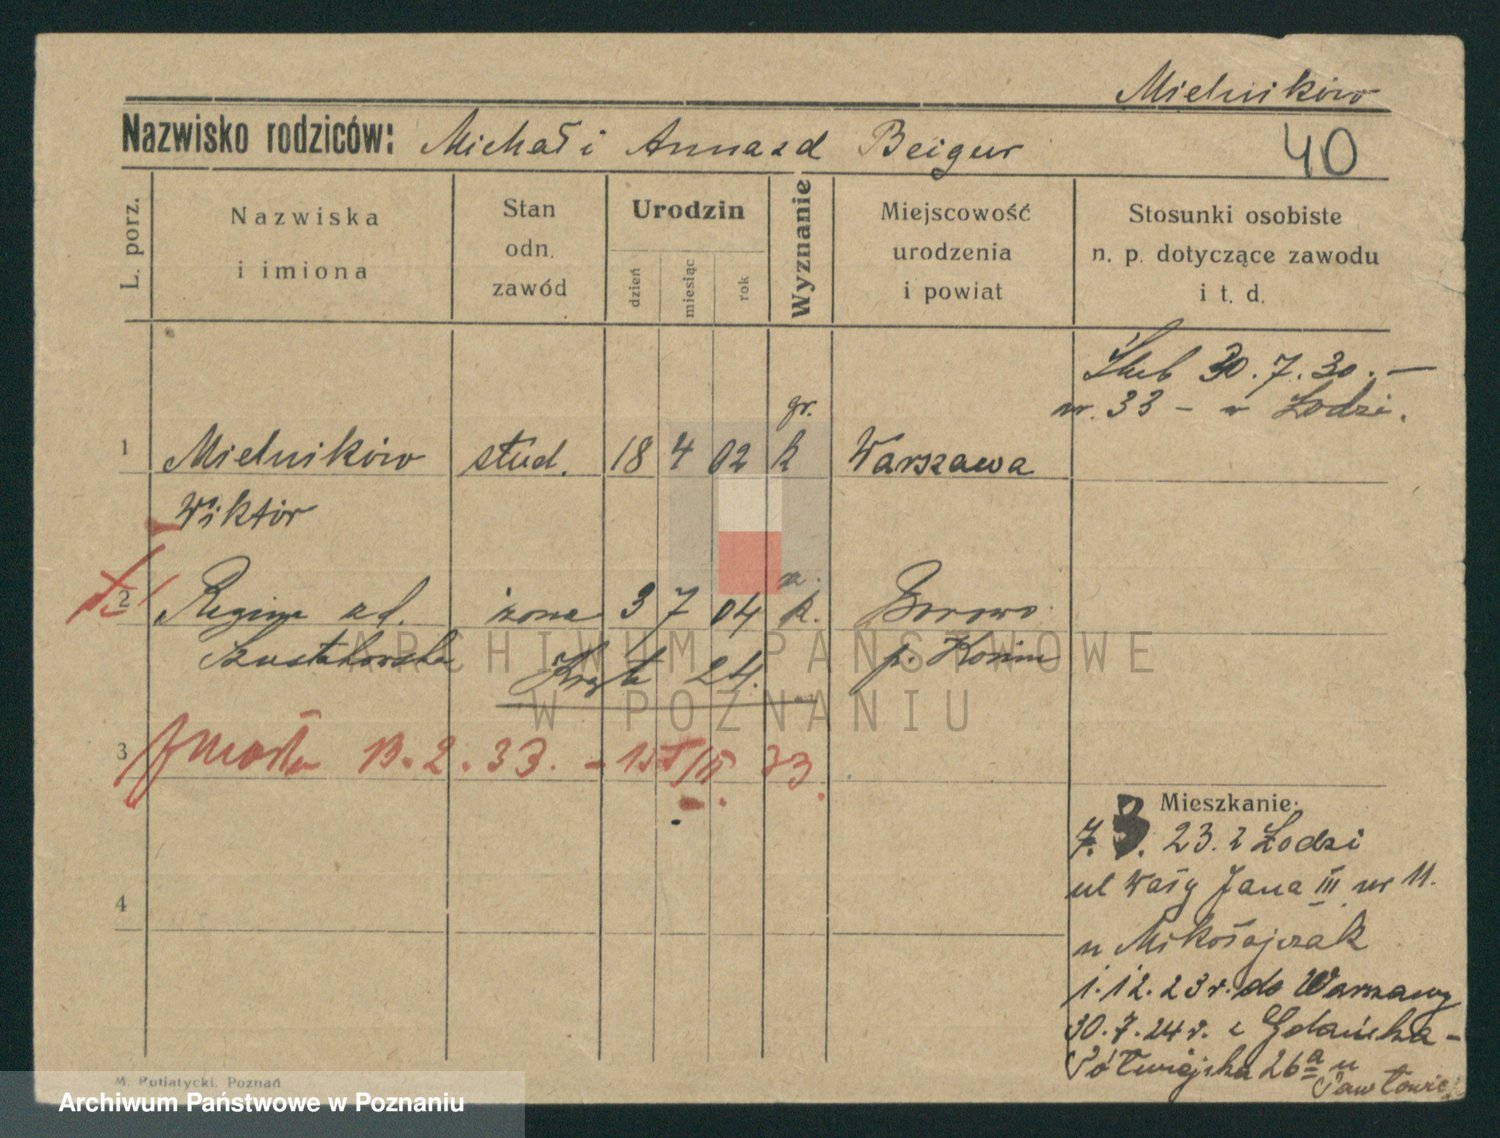 Mielników
Nazwisko rodziców: Michał i Anna zd Beigur
40
L. porz.
Nazwiska
i imiona
Stan
odn.
zawód
Urodzin
dzień
miesiąc
rok
Wyznanie
Miejscowość
urodzenia
i powiat
Stosunki osobiste
n. p. dotyczące zawodu
i t. d.
Ślub 30.7.30. —
nr. 33 – w Łodzi.
gr.
1 Mielników stud. 18 4 02 k Warszawa
Wiktór
2 Regina zd. żona 3 7 04 k. Borowo
Szustakowska 24. p. Konin
3 Zmarła 13.2.33. – 33.
4
Mieszkanie:
7. 3. 23. z Łodzi
ul Wały Jana III nr 11.
u Mikołajczak
1.12.23r. do Warszawy
30.7.24r. z Gdańska –
Półwiejska 26a u
ARCHIWUM PAŃSTWOWE
W POZNANIU
M. Putiatycki, Poznań
Archiwum Państwowe w Poznaniu